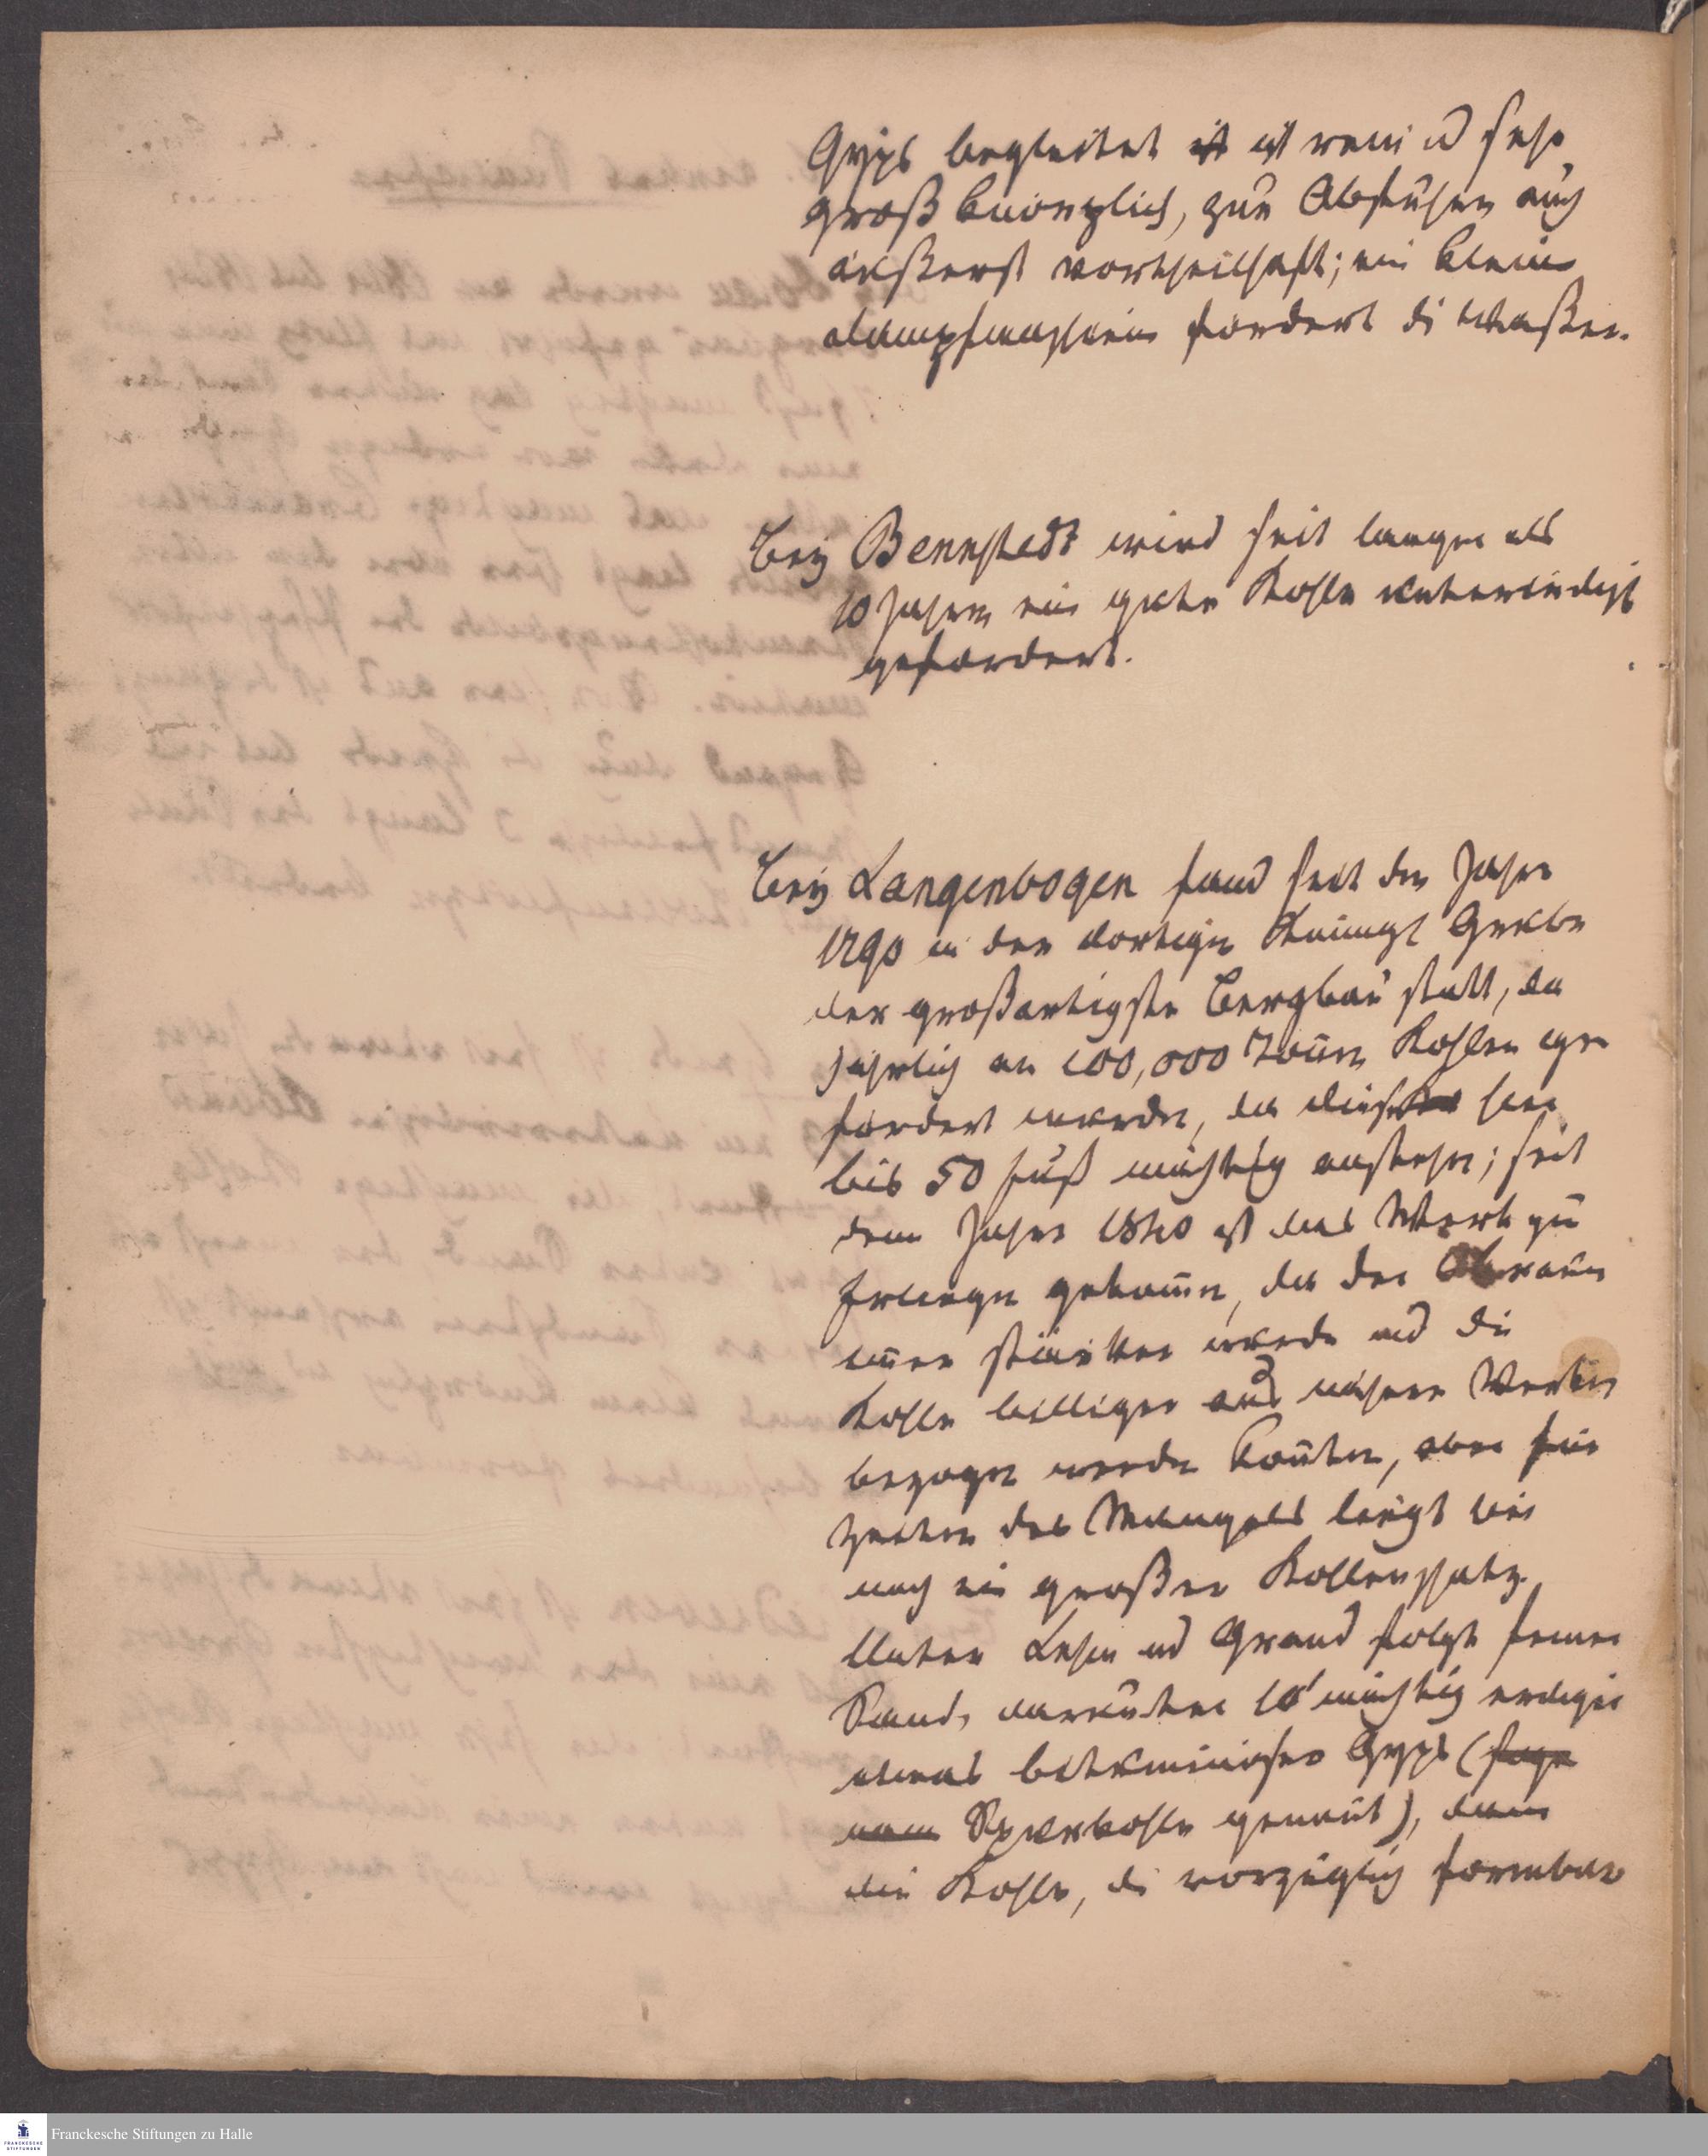 Gyps begleitet ist ist rein u sehr
groß knorplich, zum Abfuhren auch
äußerst vortheilhaft; ein kleine
dampfmaschine fördert di Waßer.
Bey Bennstedt wird seit länger als
10 Jahren ein gute Kohle unterirdisch
gefördert.
Bey Langenbogen fand seit den Jahre
1790 in der dortigen Königl Grube
der großartigste Bergbau statt, da
jährlich an 100,000 Tonnen Kohlen ge
fördert wurden, da diese hier
bis 50 fuß mächtig anstehn; seit
dem Jahre 1840 ist das Werk zum
Erliegen gekommen, da der Abraum
immer stärker wurde und die
Kohle billiger aus nähern Werken
bezogen werden konnten, aber für
Zeiten des Mangels liegt hier
noch ein großer Kohlenschatz.
Unter Lehm und Grand folgt feiner
Sand, darunter 10' mächtig erdiger
etwas bituminöser Gyps (
genannt), dann
die Kohle, di vorzüglich formbar
Franckesche Stiftungen zu Halle